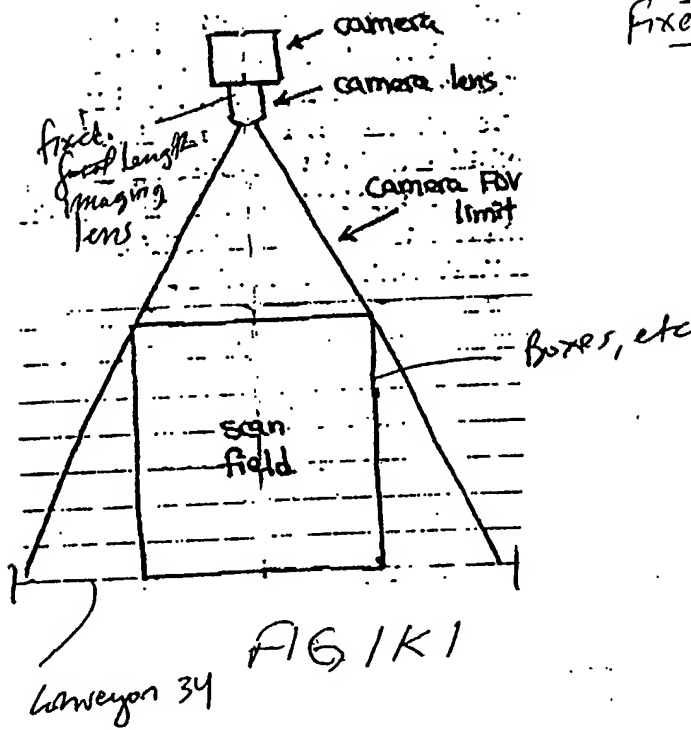 camera
Fixe
camera lens
fixed
focal length
imaging
lens
camera FOV
limit
Boxes, etc
scan
field
FIG 1K1
Conveyor 34